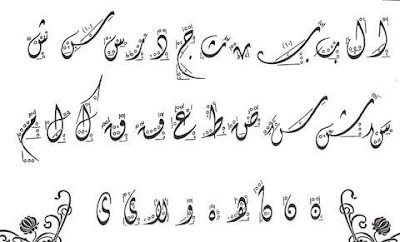 ا ل ب ج د ر س س ش
س ش س ص ط ع ف ق ك ا ل م
ن ن ه ه و لا ى ى